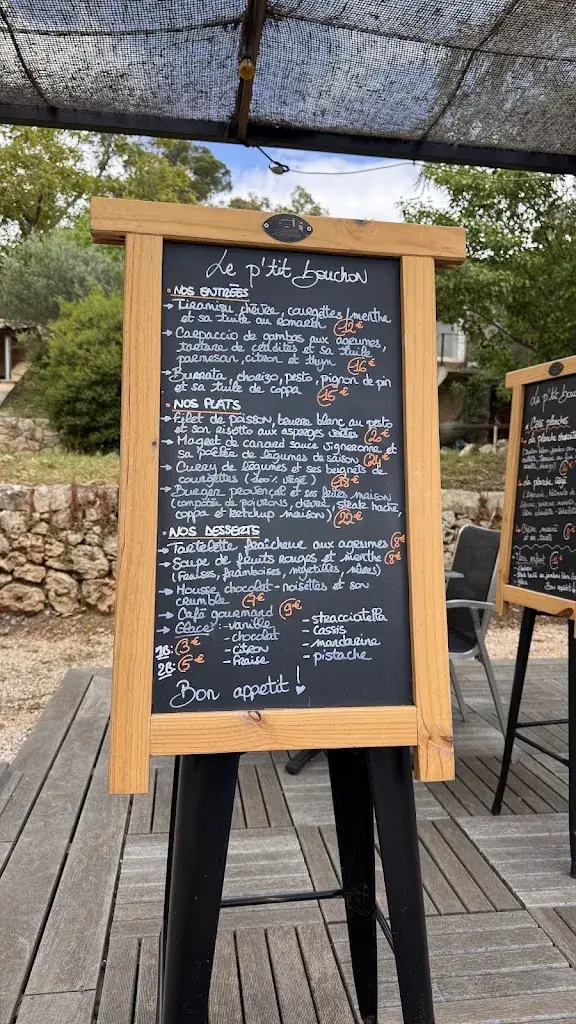 Le p'tit bouchon
• NOS ENTRÉES
→ Tiramisu chèvre, courgettes/menthe
et sa tuile au romarin 12€
→ Carpaccio de gambas aux agrumes,
tartare de céleris et sa tuile
parmesan, citron et thym 16€
→ Burrata, chorizo, pesto, pignon de pin
et sa tuile de coppa 15€
• NOS PLATS
→ Filet de poisson, beurre blanc au pesto
et son risotto aux asperges vertes
→ Magret de canard sauce vigneronne et
sa poêlée de légumes de saison 24€
→ Curry de légumes et ses beignets de
courgettes (100% végé) 18€
→ Burger provençale et ses frites maison
(compotés de poivrons, chèvre, steak haché,
coppa et ketchup maison) 20€
• NOS DESSERTS
→ Tartelette fraîcheur aux agrumes 8€
→ Soupe de fruits rouges et menthe 8€
(fraises, framboises, myrtilles, mûres)
→ Mousse chocolat-noisettes et son
crumble 7€
→ Café gourmand 9€
→ Glaces: - vanille
- chocolat
- citron
- fraise
- stracciatella
- cassis
- mandarine
- pistache
1B: 3€
2B: 5€
Bon appetit!
Le p'tit bouc